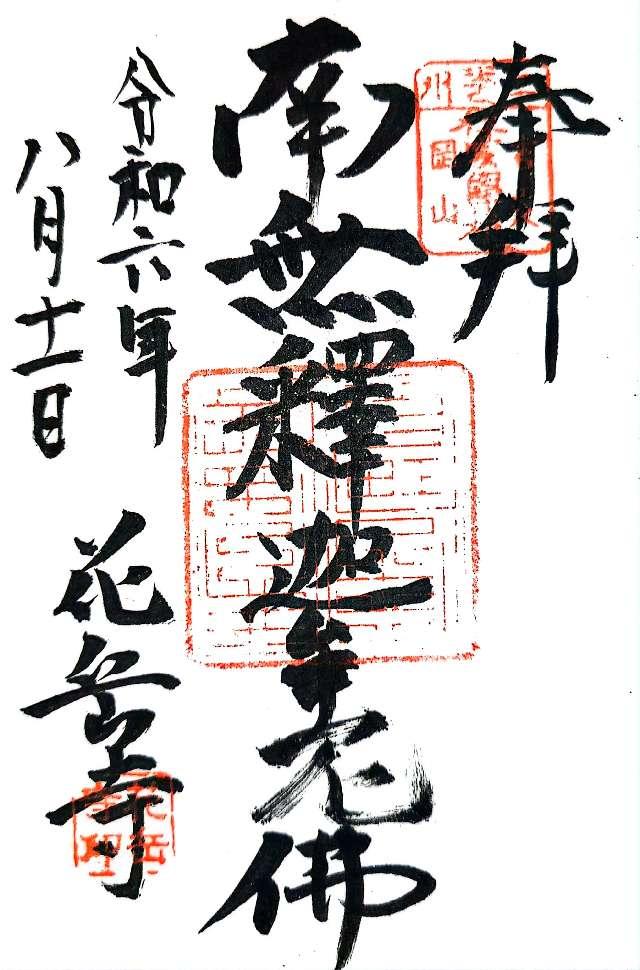 奉拜
南無釋迦牟尼佛
令和六年
八月十一日
花岳寺